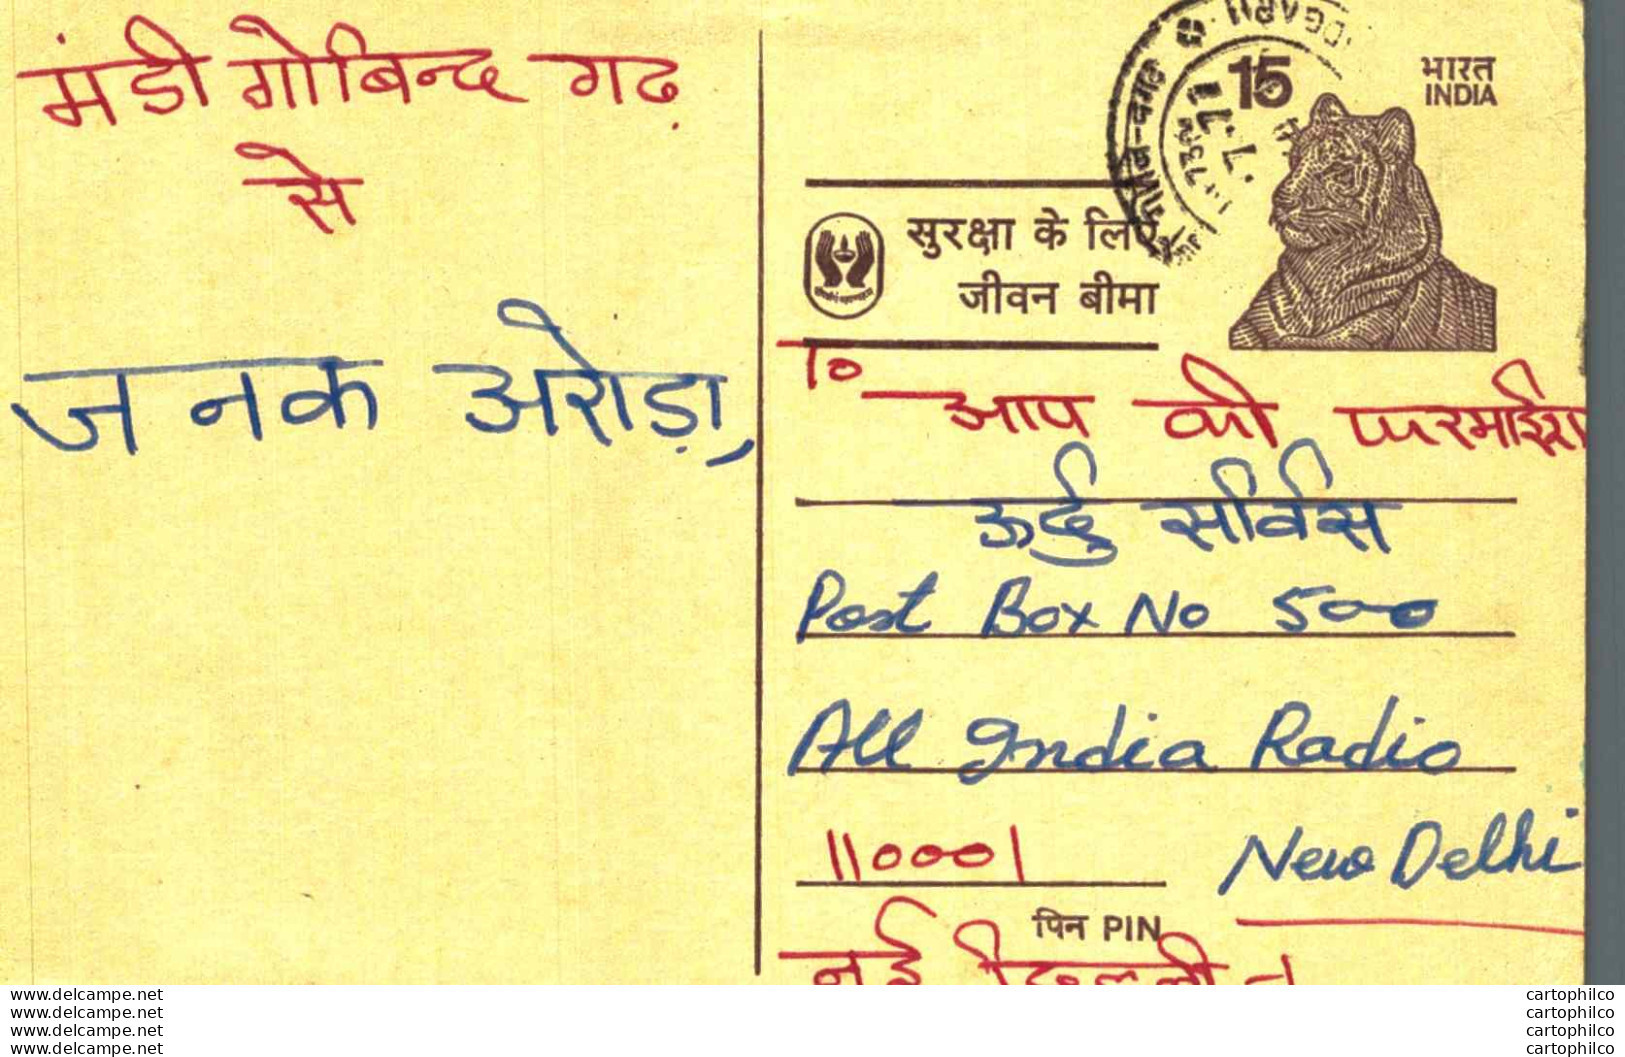 मंडी गोबिन्द गढ़
से
जनक अरोड़ा,
15
भारत
INDIA
सुरक्षा के लिए
जीवन बीमा
To
आप की फरमाईश
ऊर्दु सर्विस
Post Box No 500
All India Radio
110001 New Delhi
पिन PIN
नई दिल्ली-1
www.delcampe.net
www.delcampe.net
www.delcampe.net
www.delcampe.net
cartophilco
cartophilco
cartophilco
cartophilco